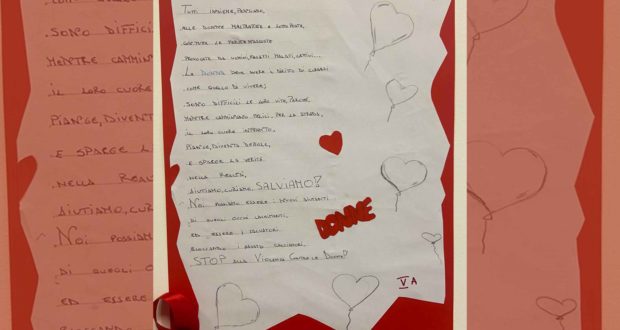 TUTTI INSIEME, PENSIAMO,
ALLE DONNE MALTRATTATE A SOTTOPOSTE,
CON TUTTA LA
PROVOCATE DA UOMINI, RAGAZZI MALATI, CATTIVI...
LA DONNA DEVE AVERE IL DIRITTO DI
COME QUELLO DI VIVERE;
SONO DIFFICILI LE LORO VITE, PERCHÉ
MENTRE CAMMINANO FELICI PER LA STRADA,
IL LORO CUORE INFRANTO,
PIANGE, DIVENTA DEBOLE,
E SPARGE LA VERITÀ.
NELLA REALTÀ,
AIUTIAMO, CURIAMO, SALVIAMO!
NOI POSSIAMO ESSERE I
DI QUEGLI OCCHI LACRIMANTI,
ED ESSERE I SALVATORI,
BLOCCANDO I
STOP ALLA VIOLENZA CONTRO LE DONNE!
DONNE
V A